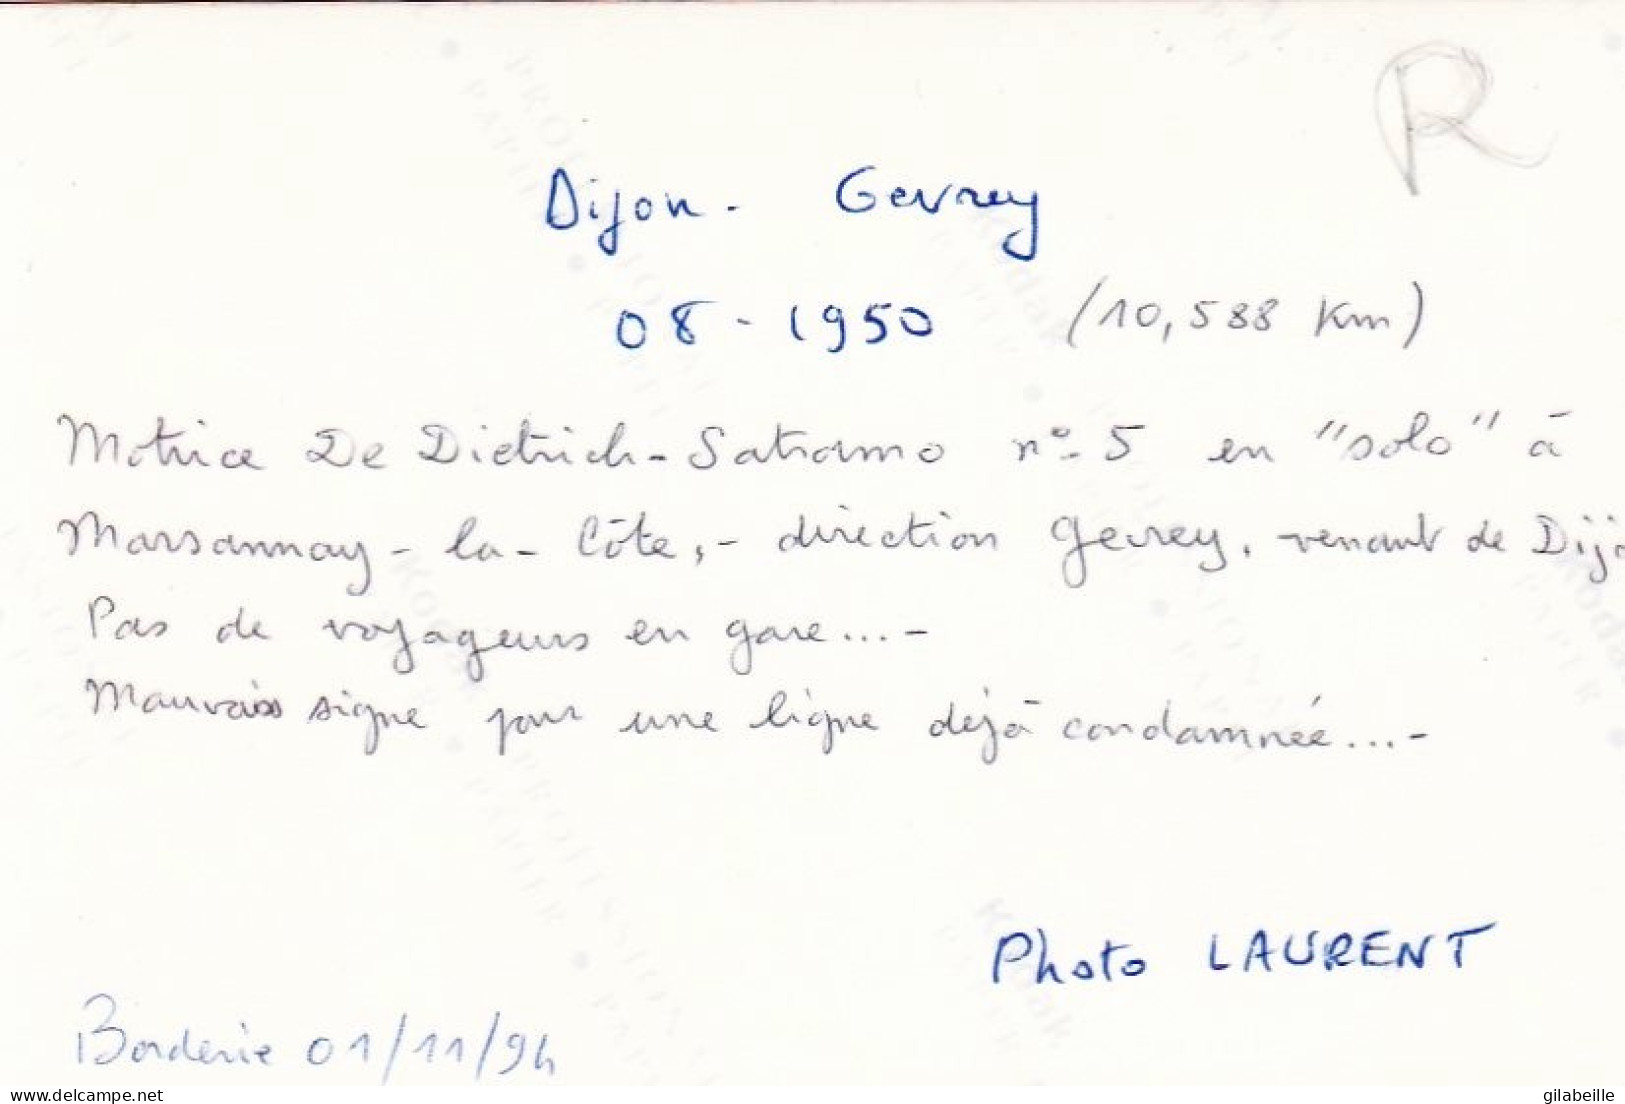 R
Dijon - Gevrey
08 - 1950 (10,588 Km)
Motrice De Dietrich - Satramo n° 5 en "solo" à
Marsannay - la - Côte, - direction Gevrey, venant de Dijo
Pas de voyageurs en gare... -
Mauvais signe pour une ligne déjà condamnée... -
Photo LAURENT
Borderie 01/11/94
www.delcampe.net
gilabeille